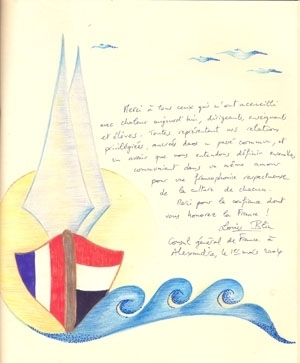 Merci à tous ceux qui m'ont accueilli
avec chaleur aujourd'hui, dirigeants, enseignants
et élèves. Toutes représentent ces relations
privilégiées, ancrées dans un passé commun, et
un avenir que nous entendons définir ensemble,
communiant dans un même amour
pour une francophonie respectueuse
de la culture de chacun.
Merci pour la confiance dont
vous honorez la France !
Louis
Consul général de France à
Alexandrie, le 15 mars